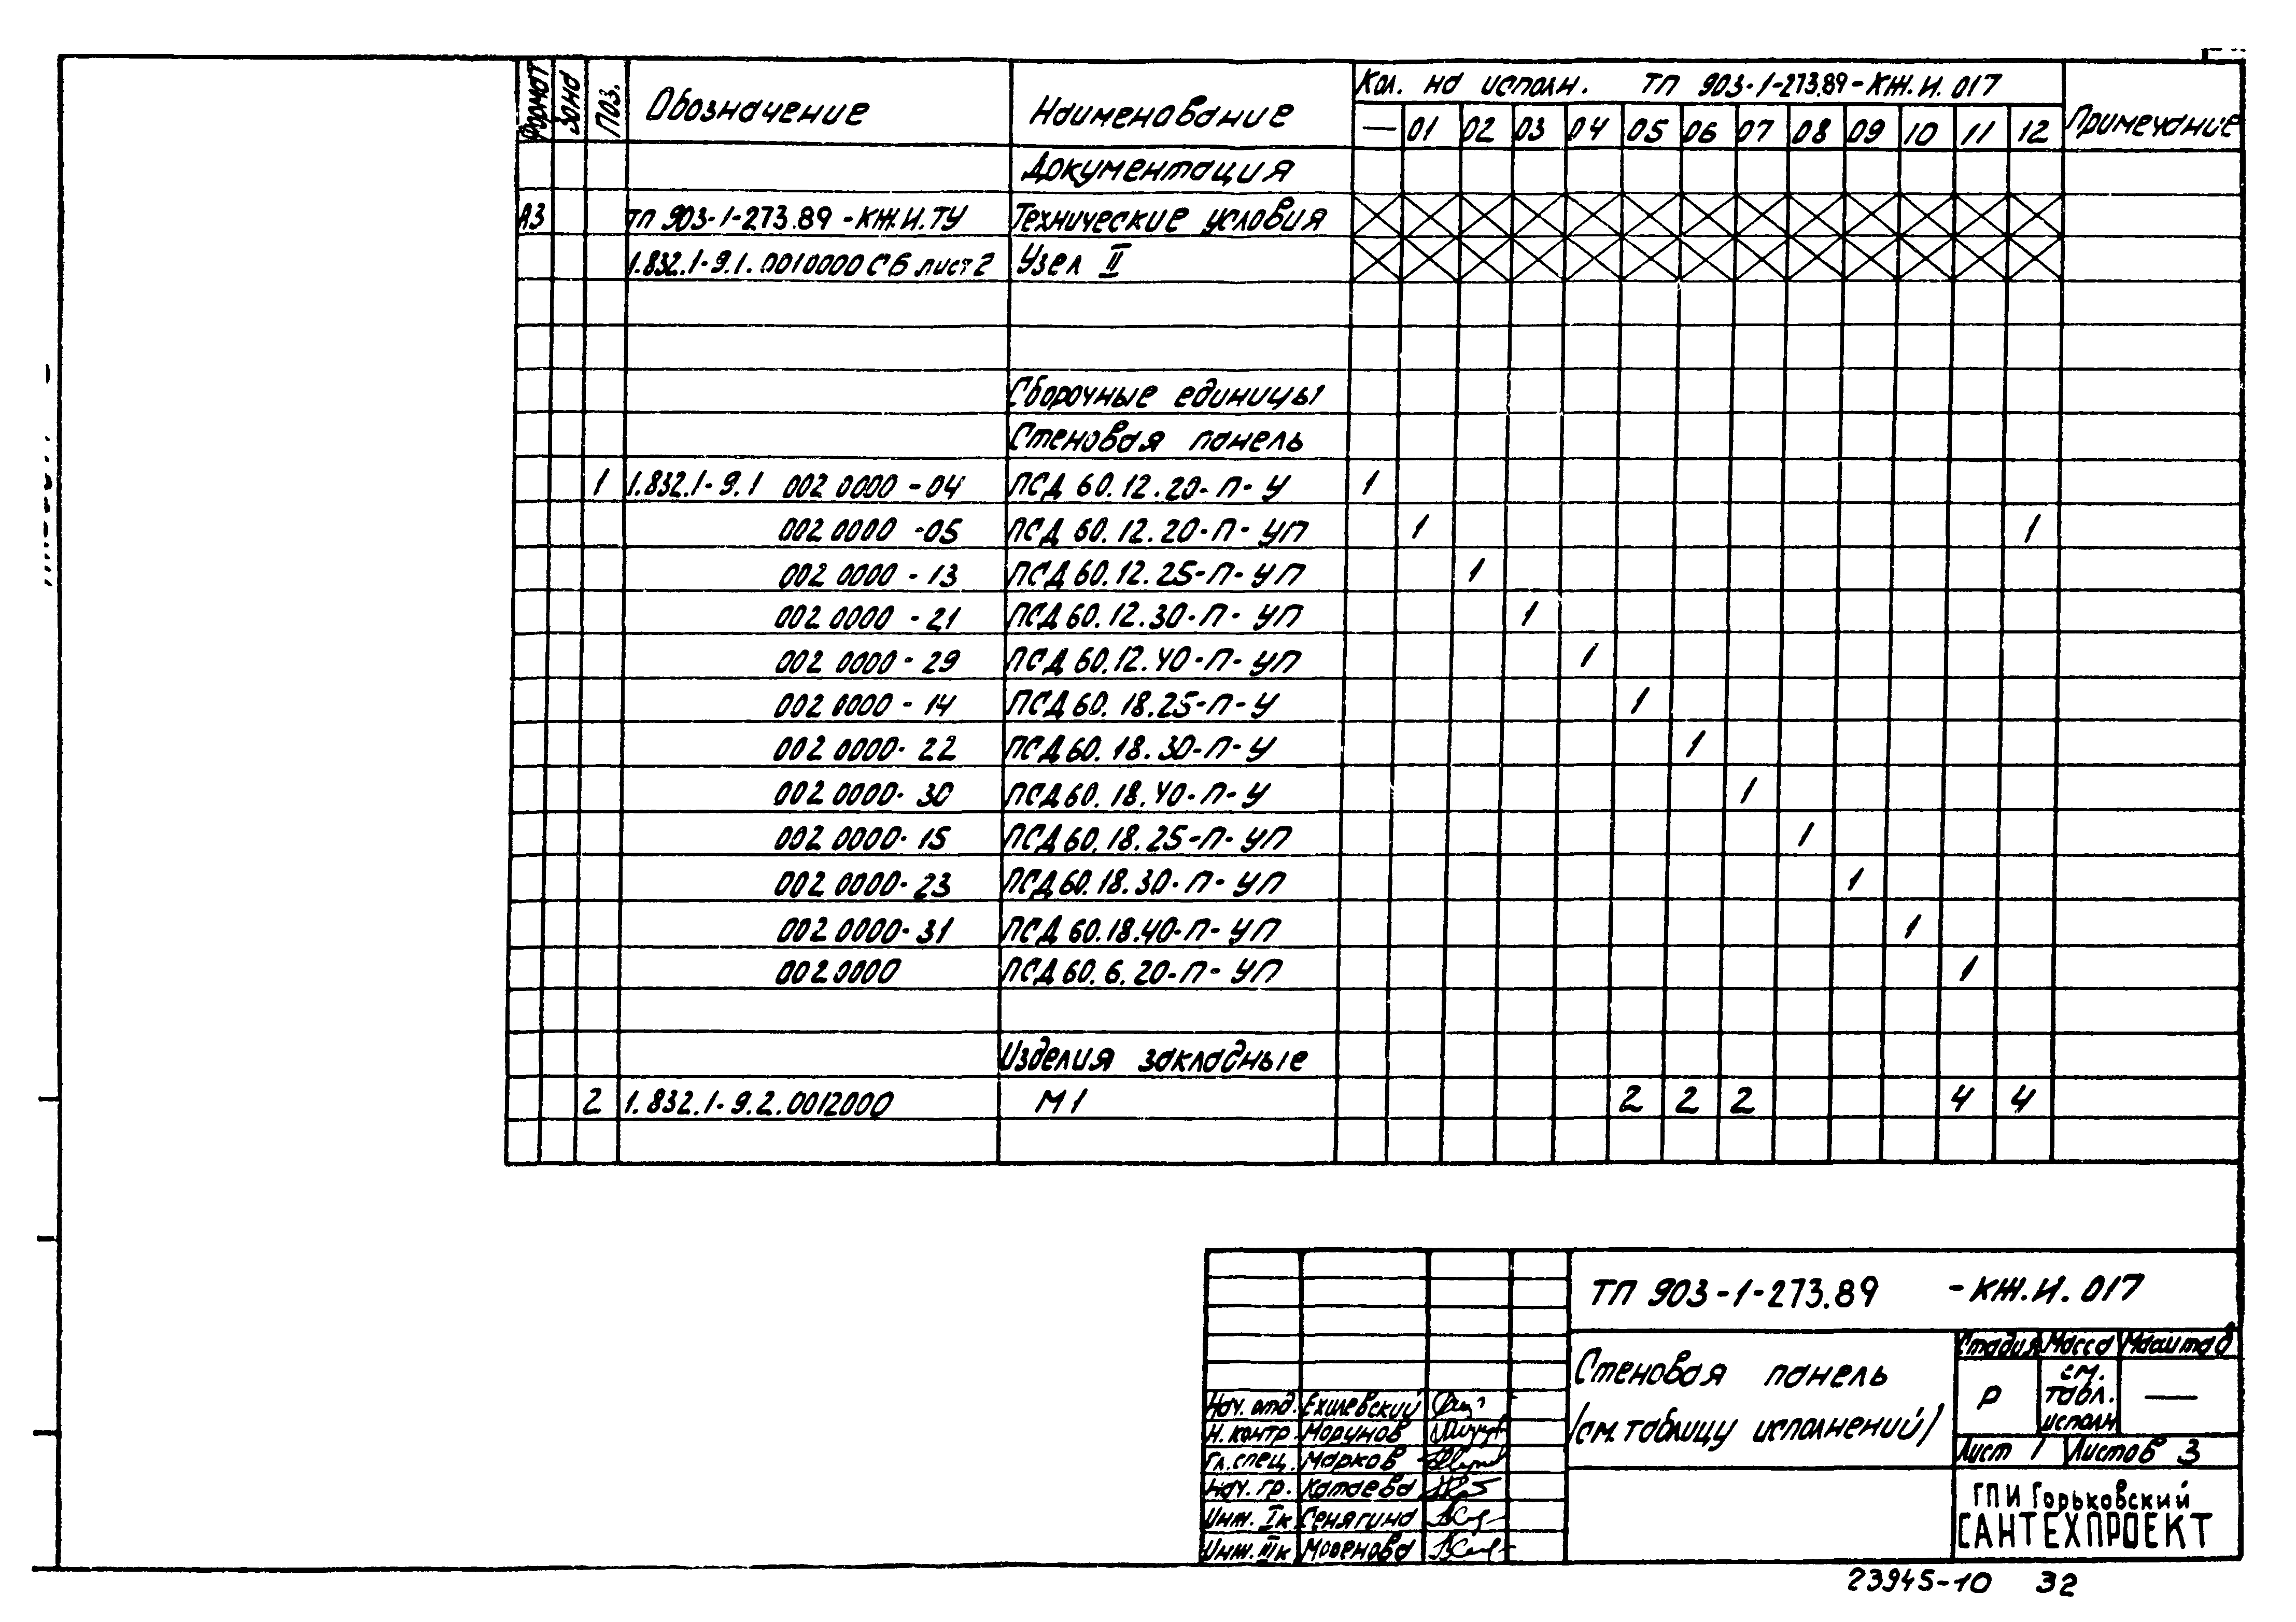 Формат Зона Поз. Обозначение Наименование Кол. на исполн. ТП 903-1-273.89-КЖ.И.017 Примечание
— 01 02 03 04 05 06 07 08 09 10 11 12
Документация
А3 ТП 903-1-273.89-КЖ.И.ТУ Технические условия
1.832.1-9.1.0010000 СБ лист 2 Узел II
Сборочные единицы
Стеновая панель
1 1.832.1-9.1 002 0000-04 ПСД 60.12.20-П-У 1
002 0000-05 ПСД 60.12.20-П-УП 1 1
002 0000-13 ПСД 60.12.25-П-УП 1
002 0000-21 ПСД 60.12.30-П-УП 1
002 0000-29 ПСД 60.12.40-П-УП 1
002 0000-14 ПСД 60.18.25-П-У 1
002 0000-22 ПСД 60.18.30-П-У 1
002 0000-30 ПСД 60.18.40-П-У 1
002 0000-15 ПСД 60.18.25-П-УП 1
002 0000-23 ПСД 60.18.30-П-УП 1
002 0000-31 ПСД 60.18.40-П-УП 1
002 0000 ПСД 60.6.20-П-УП 1
Изделия закладные
2 1.832.1-9.2.0012000 М1 2 2 2 4 4
ТП 903-1-273.89 -КЖ.И.017
Стеновая панель
/см. таблицу исполнений/
Стадия Масса Масштаб
Р см. табл. исполн —
Лист 1 Листов 3
Нач. отд. Ехилевский
Н. контр. Морунов
Гл. спец. Марков
Нач. гр. Катаева
Инж. Iк Сенягина
Инж. IIIк
ГПИ Горьковский
САНТЕХПРОЕКТ
23945-10 32